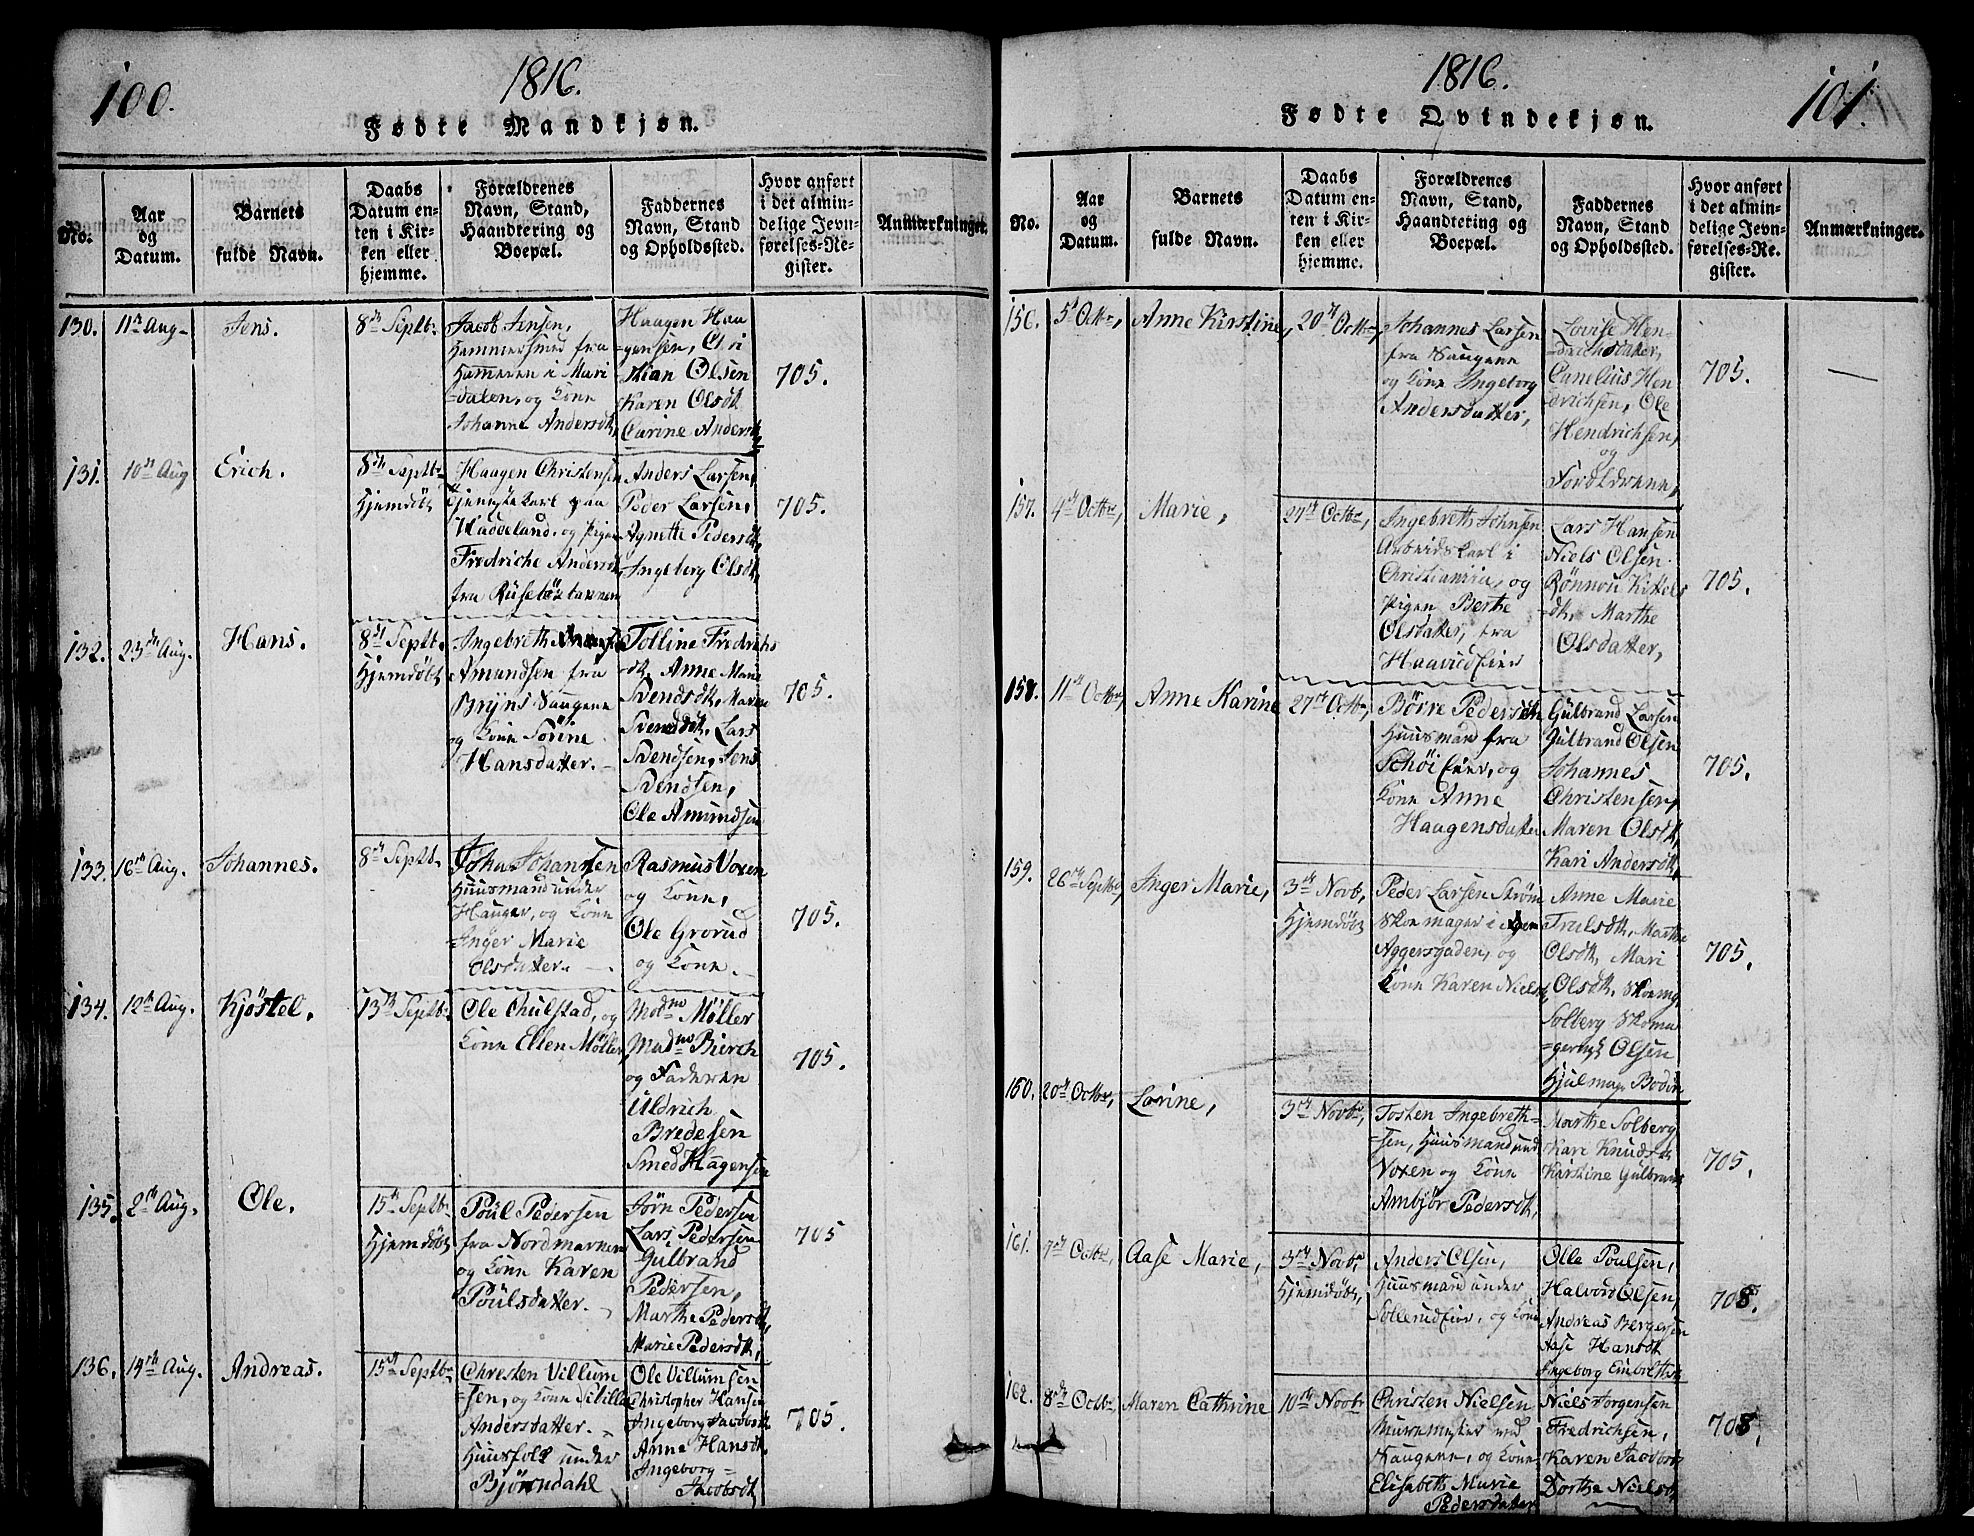 100.
1816.
Fødte Mandkjøn.
No.
Aar og Datum.
Barnets fulde Navn.
Daabs Datum enten i Kirken eller hjemme.
Forældrenes Navn, Stand, Haandtering og Boepæl.
Faddernes Navn, Stand og Opholdssted.
Hvor anført i det almindelige Jevnførelses-Register.
Anmærkninger.
130.
11te Aug.
Jens.
8de Septbr
Jacob Jensen,
Hammersmed fra
Hammeren i Mari
=dalen, og Kone
Johanne Andersdt.
Haagen Haa
=gensen, Chri
stian Olsen
Karen Olsdt.
Carine Andersdt.
705.
131.
10de Aug
Erich.
8de Septbr
Hjemdöbt
Haagen Christensen
Tjenestekarl paa
Hadeland, og Pigen
Fredriche Andersdt
fra Rüseløkbakken
Anders Larsen,
Peder Larsen,
Agnette Pedersdt,
Ingeberg Olsdt,
705.
132.
23de Aug.
Hans.
8de Septb.
Hjemdöbt
Ingebreth
Amundsen fra
Bryns Saugene
og Kone Sörine
Hansdatter.
Tolline Fredrichs
dt, Anne Marie
Svendsdt, Maren
Svendsdt, Lars
Svendsen, Jens
Svendsen,
Ole Amundsen
705.
133.
16de Aug.
Johannes.
8de Septb.
John Johansen
Huusmand under
Hauger, og Kone
Inger Marie
Olsdatter.
Rasmus Voxen
og Kone,
Ole Grorud
og Kone.
705.
134.
12te Aug.
Kjöstel.
13de Septb.
Ole Chulstad, og
Kone Ellen Møller,
Madme Møller
Madme Bierch
og Faderen
Uldrich
Bredesen
Smed Hagensen
705.
135.
2den Aug.
Ole.
15de Septb.
Hjemdöbt
Poul Pedersen
fra Nordmarken
og Kone Karen
Poulsdatter.
Jörn Pedersen
Lars Pedersen
Gulbrand
Pedersen,
Marthe Pedersdt,
Marie Pedersdt,
705
136.
14de Aug.
Andreas.
15de Septbr
Christen Villum
=sen, og Kone Sibilla
Andersdatter.
Huusfolk under
Bjørndahl
Ole Villumsen
Christopher Hansen
Ingeborg Jacobsdt
Anne Hansdt.
Ingeborg
Jacobsdt
705.
1816.
101.
Fødte Qvindekjøn.
No.
Aar og Datum.
Barnets fulde Navn.
Daabs Datum enten i Kirken eller hjemme.
Forældrenes Navn, Stand, Haandtering og Boepæl.
Faddernes Navn, Stand og Opholdssted.
Hvor anført i det almindelige Jevnførelses-Register.
Anmærkninger.
156.
5te Octbr,
Anne Kirstine,
20de Octbr,
Johannes Larsen
fra Saugene
og Kone Ingeborg
Andersdatter,
Lovise Hen-
=drichsdatter,
Cunelius Hen
drichsen, Ole
Hendrichsen,
og
Forældrene,
705.
157.
4de Octbr,
Marie,
27de Octbr,
Ingebreth Johnsen
Arbeidskarl i
Christiania, og
Pigen Berthe
Olsdatter, fra
Haavudeier
Lars Hansen
Niels Olsen
Rönnou Kittels
dt, Marthe
Olsdatter,
705.
158.
11te Octbr,
Anne Karine
27de Octbr,
Börre Pedersen
Huusmand fra
Schöi Eier, og
Kone Anne
Haagensdatter
Gulbrand Larsen
Gulbrand Olsen
Johannes
Christensen,
Maren Olsdt,
Kari Andersdt,
705.
159.
26de Septbr,
Inger Marie,
3de Novb,
Hjemdöbt
Peder Larsen Ström
Skomager i
Aggersgaden, og
Kone Karen Nielsdt
Anne Marie
Trulsdt, Marthe
Olsdt, Mari
Olsdt, Skomg.
Solberg Skoma
=gersv. Olsen
Hjulmag. Bodin
705.
160.
20de Octbr,
Lorine,
3de Novbr,
Tosten Ingebreth-
=sen, Huusmand und.
Voxen og Kone
Ambjör Pedersdt,
Marthe Solberg
Kari Knudsdt
Kirstine Gulbrands
705.
161.
7de Octbr,
Aase Marie,
3de Novbr,
Hjemdöbt,
Anders Olsen,
Huusmand under
Sollerud Eier, og Kone
Olle Poulsen,
Halvor Olsen,
Andreas Bergersen
Aase Hansdt
Ingeborg Embrethsdt
708.
162.
8de Octbr,
Maren Cathrine
10de Novbr
Christen Nielsen
Muurmester ved
Saugene, og Kone
Elisabeth Marie
Pedersdatter
Niels Jorgensen
Fredrichsen,
Karen Jacobsdt
Dorthe Nielsdt,
708.